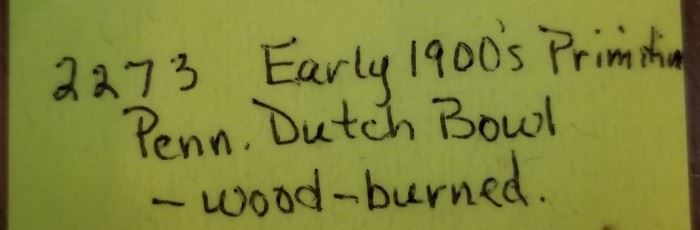 2273 Early 1900's Primitive
Penn. Dutch Bowl
- wood-burned.